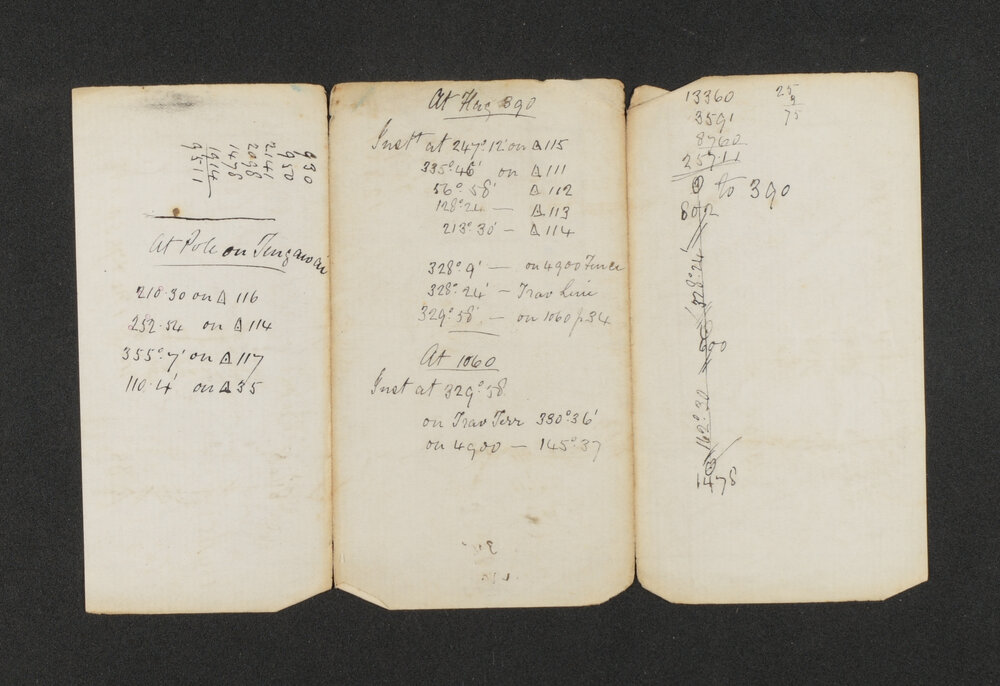 930
950
2141
2098
1478
1914
9511
At Pole on Tengawai
218·30 on △ 116
252·54 on △ 114
355°·7' on △ 117
110·4' on △ 35
At Flag 390
Inst at 247°·12' on △ 115
335°·46' on △ 111
56°·58' △ 112
128°·24 — △ 113
213°·30' — △ 114
328°·9' — on 4900 Fence
328°·24' — Trav Line
329°·58' — on 1060 p. 34
At 1060
Inst at 329°·58
on Trav Terr 330°·36'
on 4900 — 145°·37
13360
3591
8760
25711
25
3
75
to 390
802
328°·24'
162°·30
1478